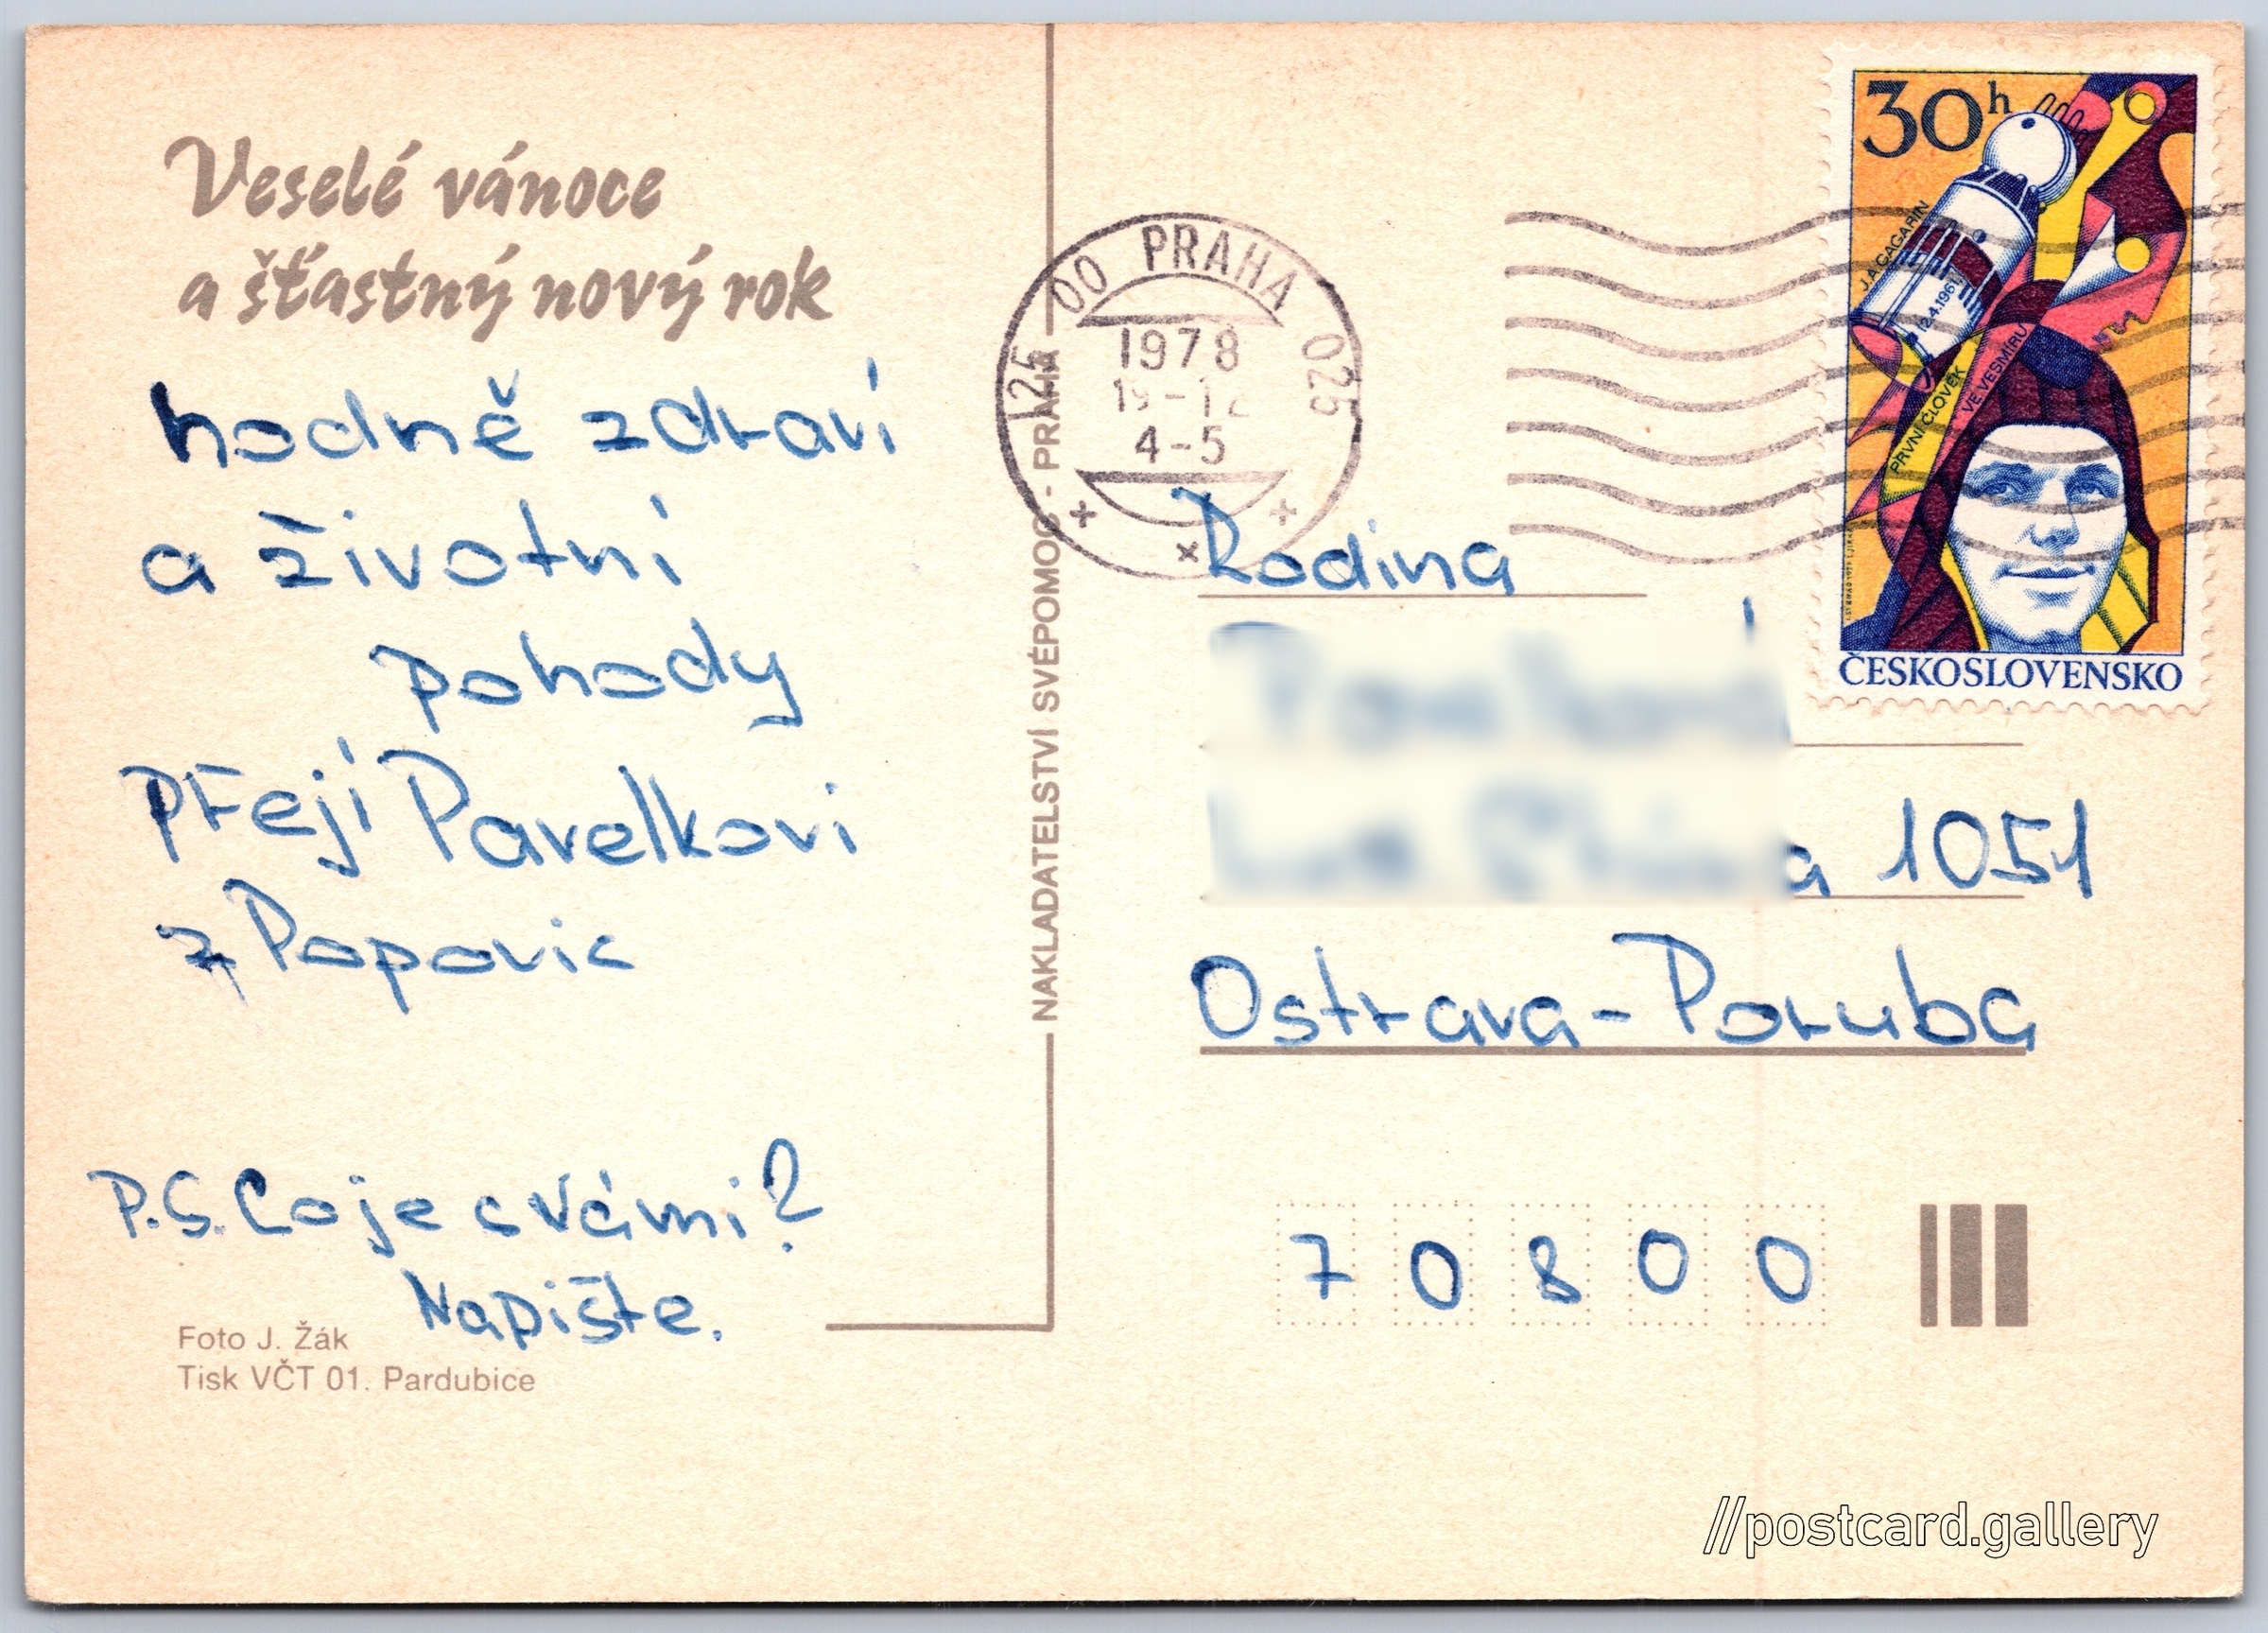 Veselé vánoce
a šťastný nový rok
hodně zdraví
a životní
pohody
přejí Pavelkovi
z Popovic
P.S. Co je s vámi?
Napište.
Foto J. Žák
Tisk VČT 01. Pardubice
NAKLADATELSTVÍ SVÉPOMOC - PRAHA
00 PRAHA 025
1978
19-12
4-5
30h
J. A. GAGARIN
12.4.1961
PRVNÍ ČLOVĚK
VE VESMÍRU
ČESKOSLOVENSKO
Rodina
1051
Ostrava-Poruba
70800
//postcard.gallery